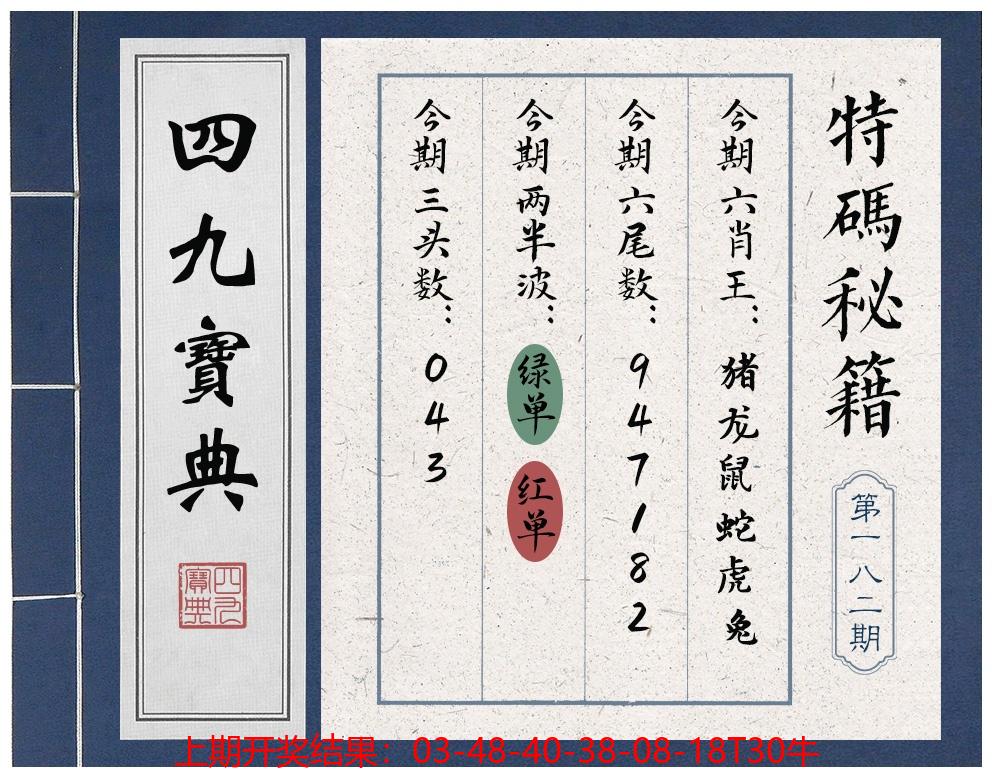 特碼秘籍
第一八二期
今期六肖王：猪龙鼠蛇虎兔
今期六尾数：947182
今期两半波：绿单 红单
今期三头数：043
四九寶典
四九寶典
上期开奖结果：03-48-40-38-08-18T30牛